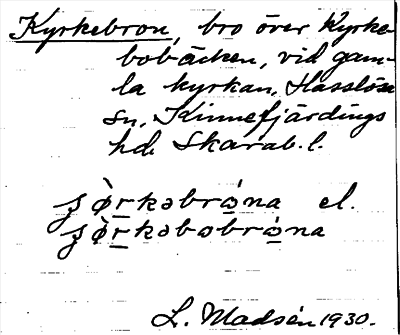 Kyrkebron, bro över Kyrke-
bobäcken, vid gam-
la kyrkan, Hasslösa
sn, Kinnefjärdings
hd. Skarab. l.
ʒòrkəbrǿna el.
ʒòrkəbobrǿna
L. Madsén 1930.